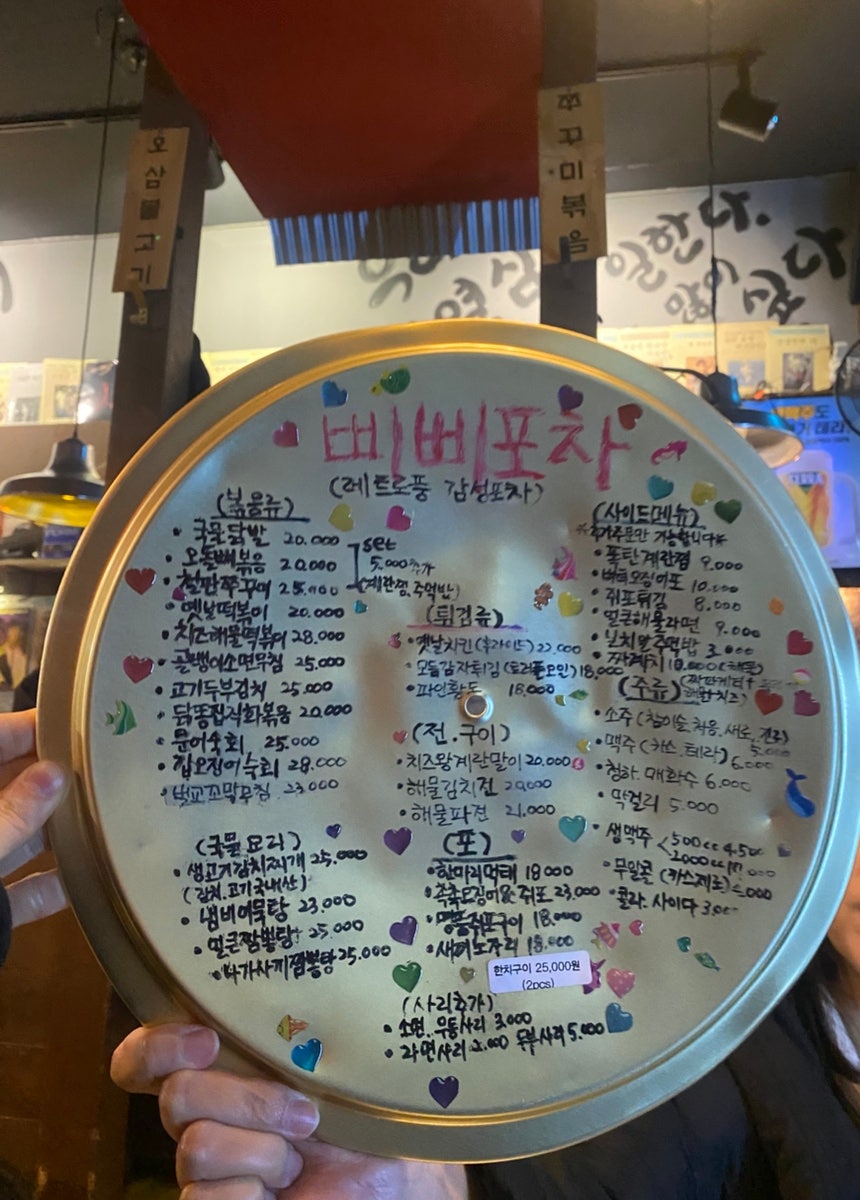 오삼불고기
쭈꾸미볶음
일한다.
많이
삐삐포차
(레트로풍 감성포차)
(볶음류)
• 국물닭발 20.000
• 오돌뼈볶음 20.000
• 철판쭈꾸미 25.000
set
5.000추가
(계란찜, 주먹밥)
• 옛날떡볶이 20.000
• 치즈해물떡볶이 28.000
• 골뱅이소면무침 25.000
• 고기두부김치 25.000
• 닭똥집직화볶음 20.000
• 문어숙회 25.000
• 갑오징어숙회 28.000
• 벌교꼬막무침 23.000
(국물요리)
• 생고기김치찌개 25.000
(김치.고기국내산)
• 냄비어묵탕 23.000
• 얼큰짬뽕탕 25.000
• 나가사끼짬뽕탕 25.000
(튀김류)
• 옛날치킨(후라이드) 22.000
• 모듬감자튀김 18.000
• 파인황도 18.000
(전.구이)
• 치즈왕계란말이 20.000
• 해물김치전 20,000
• 해물파전 21.000
(포)
• 한마리먹태 18000
• 촉촉오징어& 쥐포 23.000
• 명품쥐포구이 18.000
• 18.000
한치구이 25,000원
(2pcs)
(사리추가)
• 소면.. 우동사리 3.000
• 라면사리 2.000 두부사리 5.000
(사이드메뉴)
※추가주문만 가능합니다※
• 폭탄계란찜 9.000
• 버터오징어포 10.000
• 쥐포튀김 8.000
• 얼큰해물라면 9.000
• 날치알주먹밥 3.000
• 10.000
(주류)
• 소주 (참이슬, 처음, 새로, 진로) 5.000
• 맥주 (카스, 테라) 6.000
• 청하. 매화수 6.000
• 막걸리 5.000
• 생맥주 500cc 4.500
2000cc
• 무알콜 (카스제로)
• 콜라. 사이다